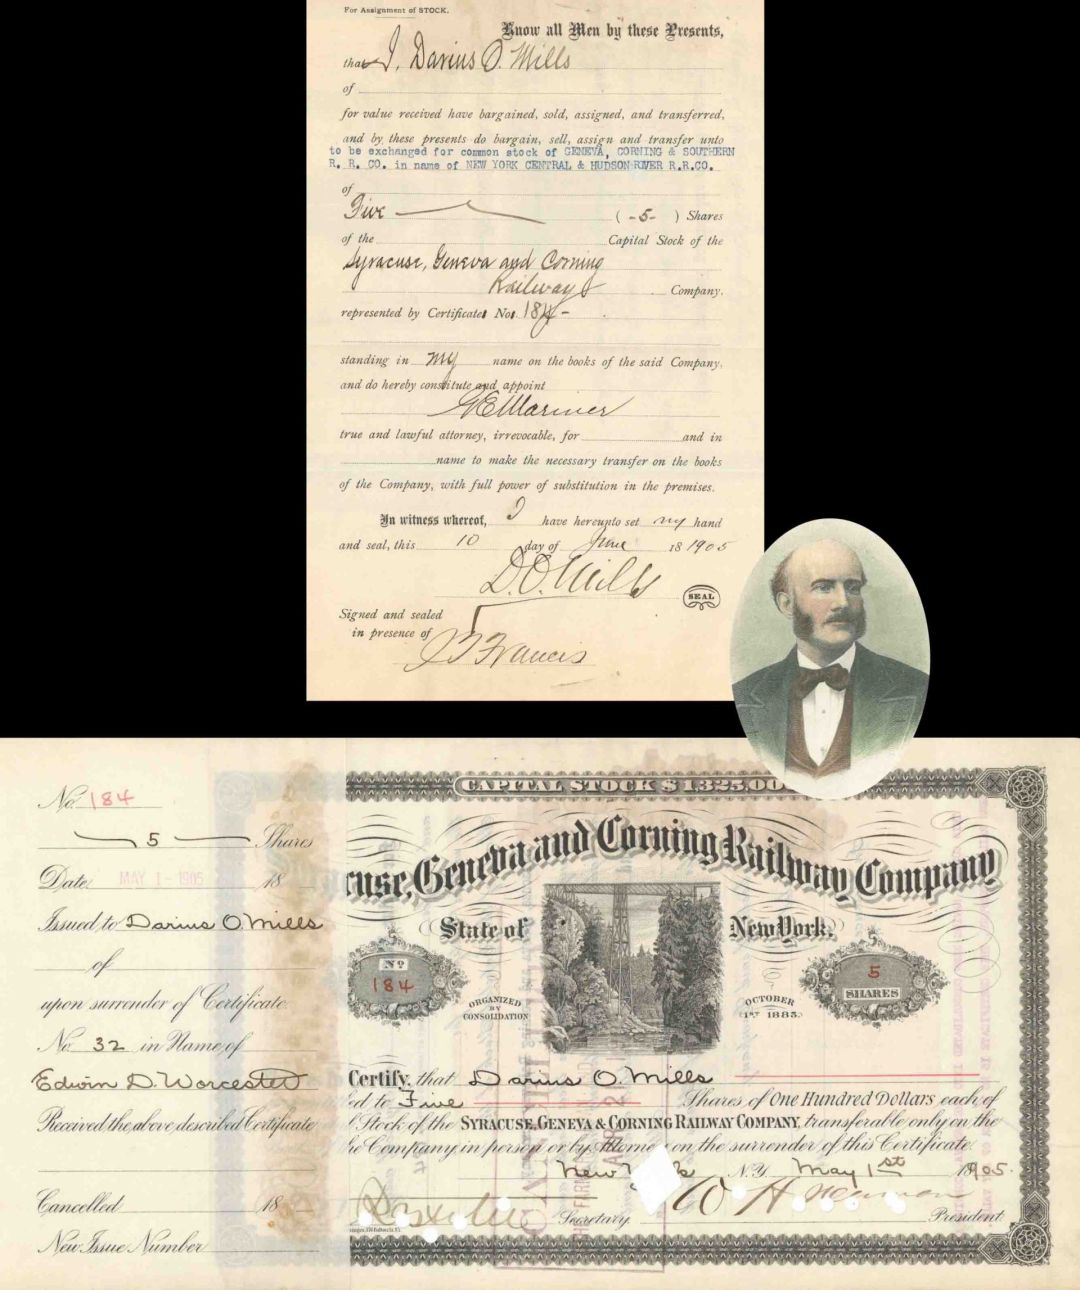 For Assignment of STOCK.
Know all Men by these Presents,
that I, Darius O. Mills
of
for value received have bargained, sold, assigned, and transferred,
and by these presents do bargain, sell, assign and transfer unto
to be exchanged for common stock of GENEVA, CORNING & SOUTHERN
R. R. CO. in name of NEW YORK CENTRAL & HUDSON RIVER R.R.CO.
of
Five ( -5- ) Shares
of the Capital Stock of the
Syracuse, Geneva and Corning
Railway Company,
represented by Certificates Nos. 184 -
standing in my name on the books of the said Company,
and do hereby constitute and appoint
G E Mariner
true and lawful attorney, irrevocable, for and in
name to make the necessary transfer on the books
of the Company, with full power of substitution in the premises.
In witness whereof, I have hereunto set my hand
and seal, this 10 day of June 18 1905
D. O. Mills
SEAL
Signed and sealed
in presence of
Francis
No. 184
5 Shares
Date MAY 1 - 1905 18
Issued to Darius O. Mills
of
upon surrender of Certificate
No. 32 in Name of
Edwin D. Worcester
Received the above described Certificate
Cancelled 18
New Issue Number
CAPITAL STOCK $1325,00
cuse, Geneva and Corning Railway Company
State of New York.
No 184
ORGANIZED BY CONSOLIDATION
OCTOBER 1ST 1885.
5 SHARES
Certify, that Darius O. Mills
ed to Five Shares of One Hundred Dollars each of
l Stock of the SYRACUSE, GENEVA & CORNING RAILWAY COMPANY, transferable only on the
he Company in person or by Attorney on the surrender of this Certificate.
New York N.Y. May 1st 1905.
Secretary. President.